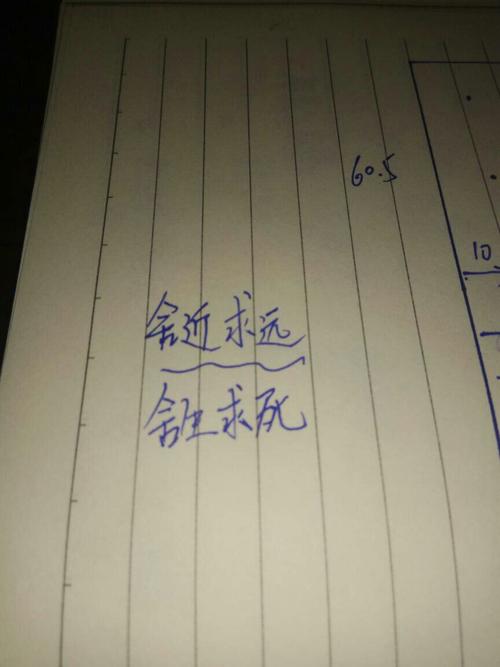 60.5
10
舍近求远
舍生求死